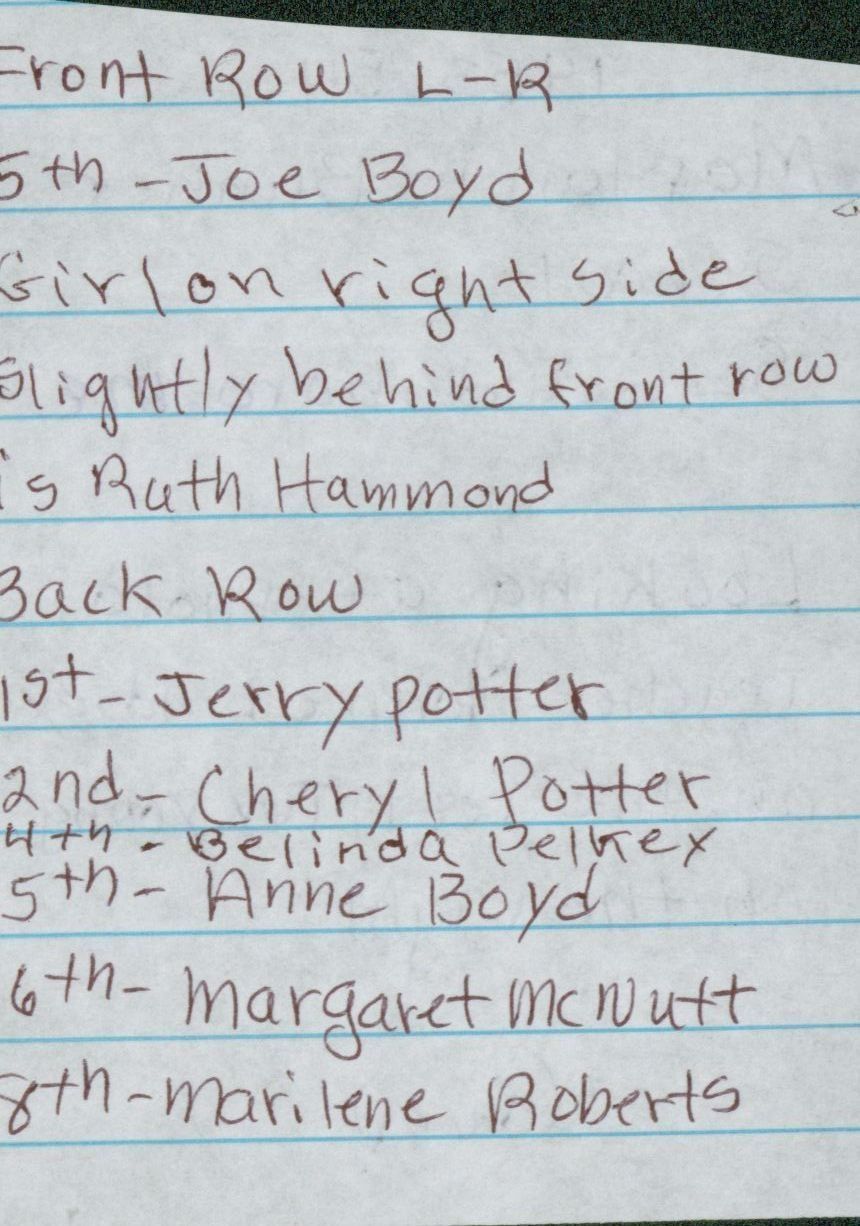 Front Row L-R
5th - Joe Boyd
Girl on right side
slightly behind front row
is Ruth Hammond
Back Row
1st - Jerry Potter
2nd - Cheryl Potter
4th - Belinda Pelkey
5th - Anne Boyd
6th - Margaret McNutt
8th - Marilene Roberts